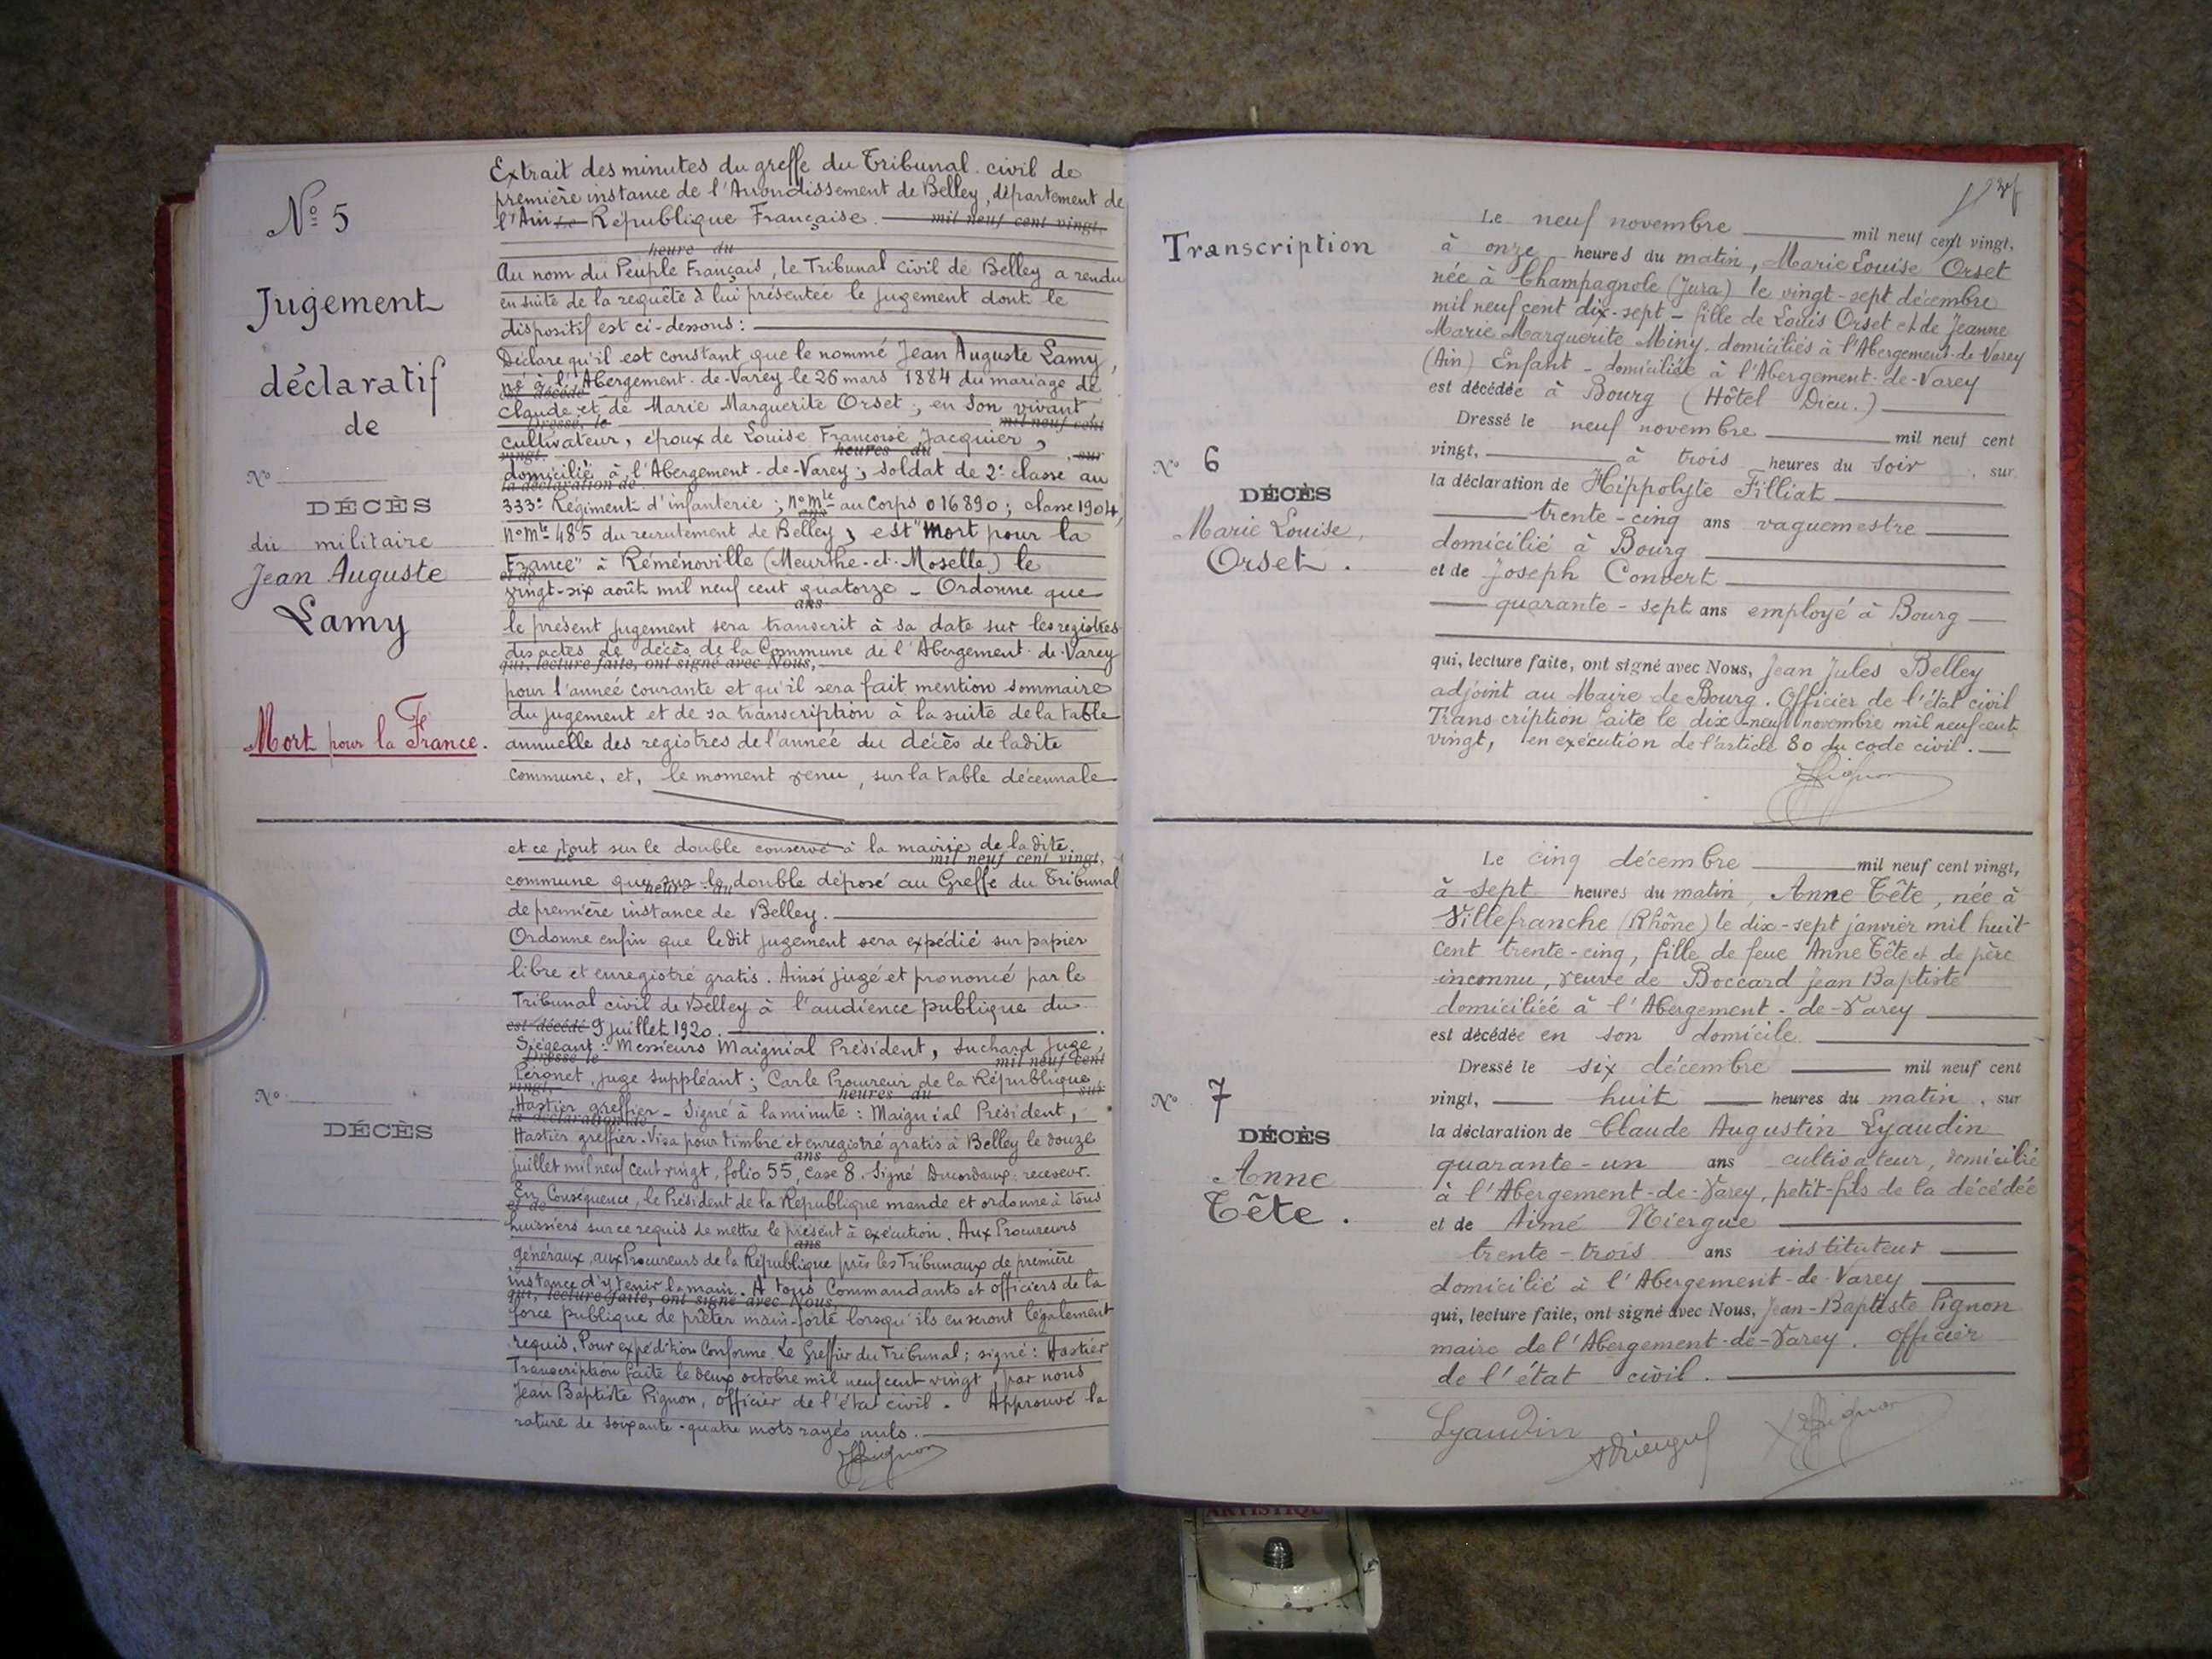 Nº 5
Jugement
déclaratif
de
Nº
DÉCÈS
du militaire
Jean Auguste
Lamy
Mort pour la France.
Extrait des minutes du greffe du Tribunal civil de
première instance de l'Arrondissement de Belley, département de
l'Ain Le République Française. mil neuf cent vingt,
heure du
Au nom du Peuple Français, le Tribunal civil de Belley a rendu
en suite de la requête à lui présentée le jugement dont le
dispositif est ci-dessous :
Déclare qu'il est constant que le nommé Jean Auguste Lamy,
né à l'Abergement-de-Varey le 26 mars 1884 du mariage de
est décédé
Claude et de Marie Marguerite Orset ; en son vivant,
Dressé le mil neuf cent
cultivateur, époux de Louise Françoise Jacquier,
vingt, heures du , sur
domicilié à l'Abergement-de-Varey ; soldat de 2e classe au
la déclaration de
333e Régiment d'infanterie ; nº mle au Corps 016890 ; classe 1904,
ans
nº mle 485 du recrutement de Belley, est "Mort pour la
France" à Réménoville (Meurthe-et-Moselle) le
et de
vingt-six août mil neuf cent quatorze - Ordonne que
ans
le présent jugement sera transcrit à sa date sur les registres
des actes de décès de la Commune de l'Abergement-de-Varey
qui, lecture faite, ont signé avec Nous,
pour l'année courante et qu'il sera fait mention sommaire
du jugement et de sa transcription à la suite de la table
annuelle des registres de l'année du décès de ladite
commune, et, le moment venu, sur la table décennale
Nº
DÉCÈS
et ce, tout sur le double conservé à la mairie de ladite
mil neuf cent vingt,
commune que sur le double déposé au Greffe du Tribunal
heure du
de première instance de Belley.
Ordonne enfin que ledit jugement sera expédié sur papier
libre et enregistré gratis. Ainsi jugé et prononcé par le
Tribunal civil de Belley à l'audience publique du
est décédé 9 juillet 1920.
Siégeant : Messieurs Maignial Président, Suchard Juge,
Dressé le mil neuf cent
Péronet, juge suppléant ; Carle Procureur de la République
vingt, heures du , sur
Hastier greffier - Signé à la minute : Maignial Président,
la déclaration de
Hastier greffier. Visa pour timbre et enregistré gratis à Belley le douze
ans
juillet mil neuf cent vingt, folio 55, case 8. Signé receveur.
En Conséquence, le Président de la République mande et ordonne à tous
et de
huissiers sur ce requis de mettre le présent à exécution. Aux Procureurs
ans
généraux, aux Procureurs de la République près les Tribunaux de première
instance d'y tenir la main. A tous Commandants et officiers de la
qui, lecture faite, ont signé avec Nous,
force publique de prêter main-forte lorsqu'ils en seront légalement
requis. Pour expédition Conforme Le Greffier du Tribunal ; signé : Hastier
Transcription faite le deux octobre mil neuf cent vingt par nous
Jean Baptiste Pignon, officier de l'état civil. Approuvé la
rature de soixante-quatre mots rayés nuls.
JBPignon
Transcription
Nº 6
DÉCÈS
Marie Louise
Orset.
Le neuf novembre mil neuf cent vingt,
à onze heures du matin, Marie Louise Orset
née à Champagnole (Jura) le vingt-sept décembre
mil neuf cent dix-sept - fille de Louis Orset et de Jeanne
Marie Marguerite Miny, domiciliés à l'Abergement-de-Varey
(Ain) Enfant - domiciliée à l'Abergement-de-Varey
est décédée à Bourg (Hôtel Dieu.)
Dressé le neuf novembre mil neuf cent
vingt, à trois heures du soir , sur
la déclaration de Hippolyte Filliat
trente-cinq ans vaguemestre
domicilié à Bourg
et de Joseph Convert
quarante-sept ans employé à Bourg
qui, lecture faite, ont signé avec Nous, Jean Jules Belley
adjoint au Maire de Bourg. Officier de l'état civil
Transcription faite le dix-neuf novembre mil neuf cent
vingt, en exécution de l'article 80 du code civil.
JBPignon
Nº 7
DÉCÈS
Anne
Tête.
Le cinq décembre mil neuf cent vingt,
à sept heures du matin, Anne Tête, née à
Villefranche (Rhône) le dix-sept janvier mil huit
cent trente-cinq, fille de feue Anne Tête et de père
inconnu, veuve de Boccard Jean Baptiste
domiciliée à l'Abergement-de-Varey
est décédée en son domicile.
Dressé le six décembre mil neuf cent
vingt, huit heures du matin , sur
la déclaration de Claude Augustin Lyaudin
quarante-un ans cultivateur, domicilié
à l'Abergement-de-Varey, petit-fils de la décédée
et de Aimé Niergue
trente-trois ans instituteur
domicilié à l'Abergement-de-Varey
qui, lecture faite, ont signé avec Nous, Jean-Baptiste Pignon
maire de l'Abergement-de-Varey. Officier
de l'état civil.
Lyaudin
JBPignon
ARTISTIQUE